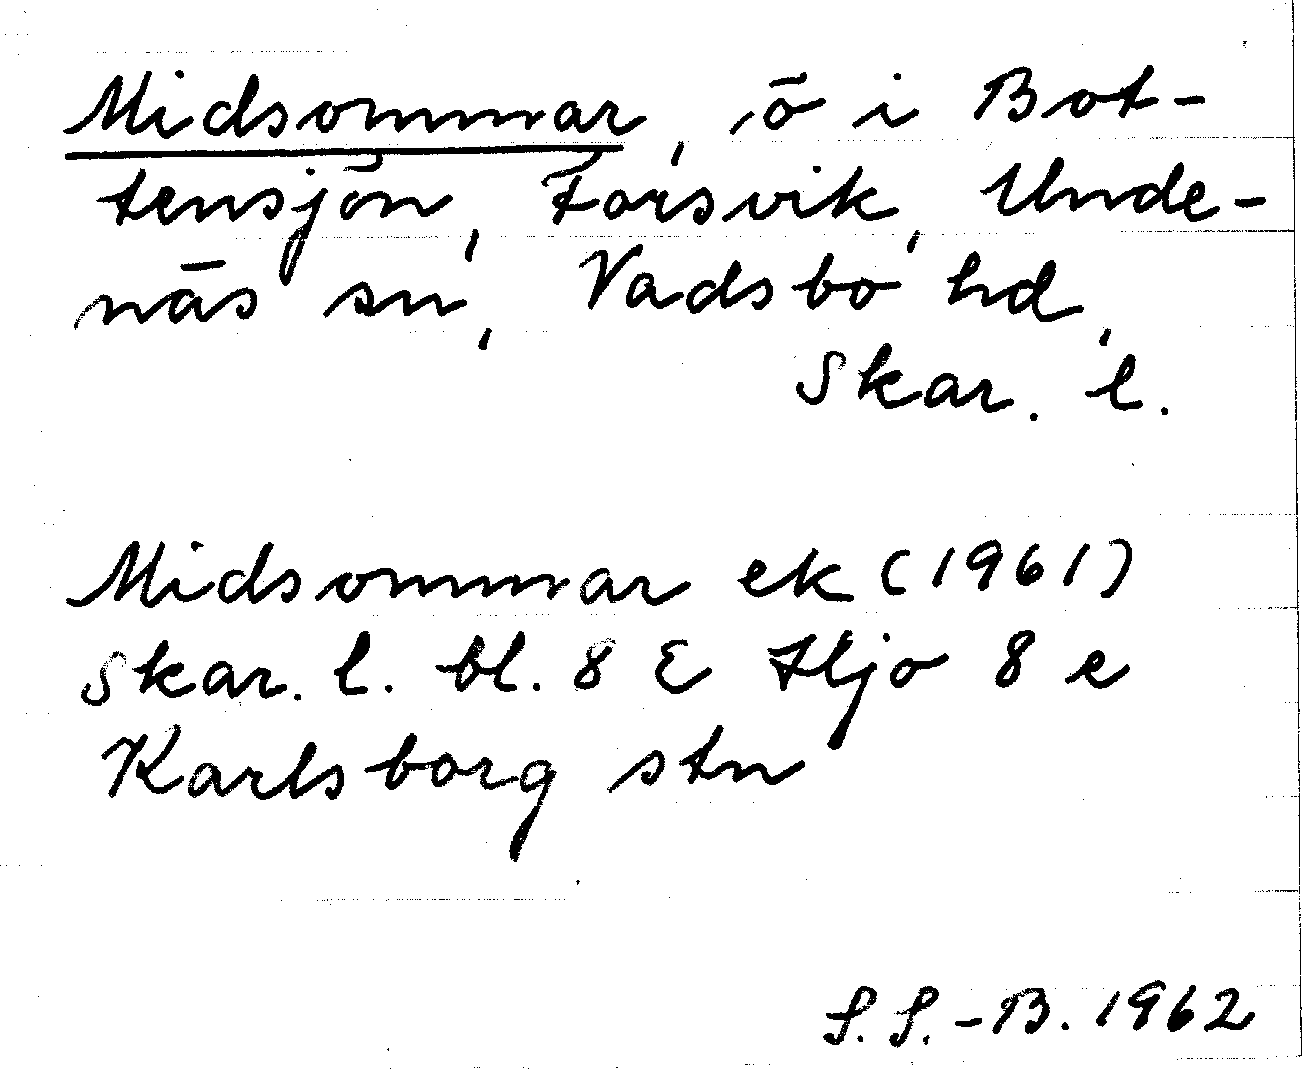 Midsommar, ö i Bot-
tensjön, Forsvik, Unde-
näs sn, Vadsbo hd,
Skar. l.
Midsommar ek (1961)
Skar. l. bl. 8 E Hjo 8 e
Karlsborg stn
S. S.-B. 1962